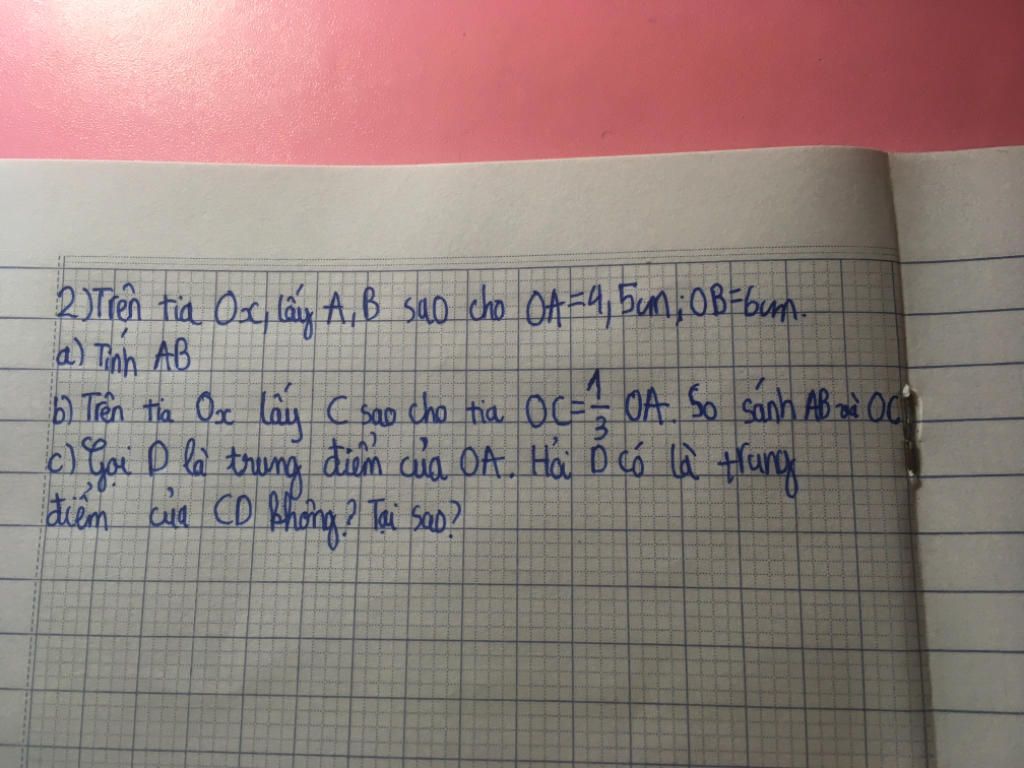 2) Trên tia Ox, lấy A, B sao cho OA = 4,5cm; OB = 6cm.
a) Tính AB
b) Trên tia Ox lấy C sao cho tia OC = 1/3 OA. So sánh AB và OC
c) Gọi D là trung điểm của OA. Hỏi D có là trung
điểm của CD không? Tại sao?